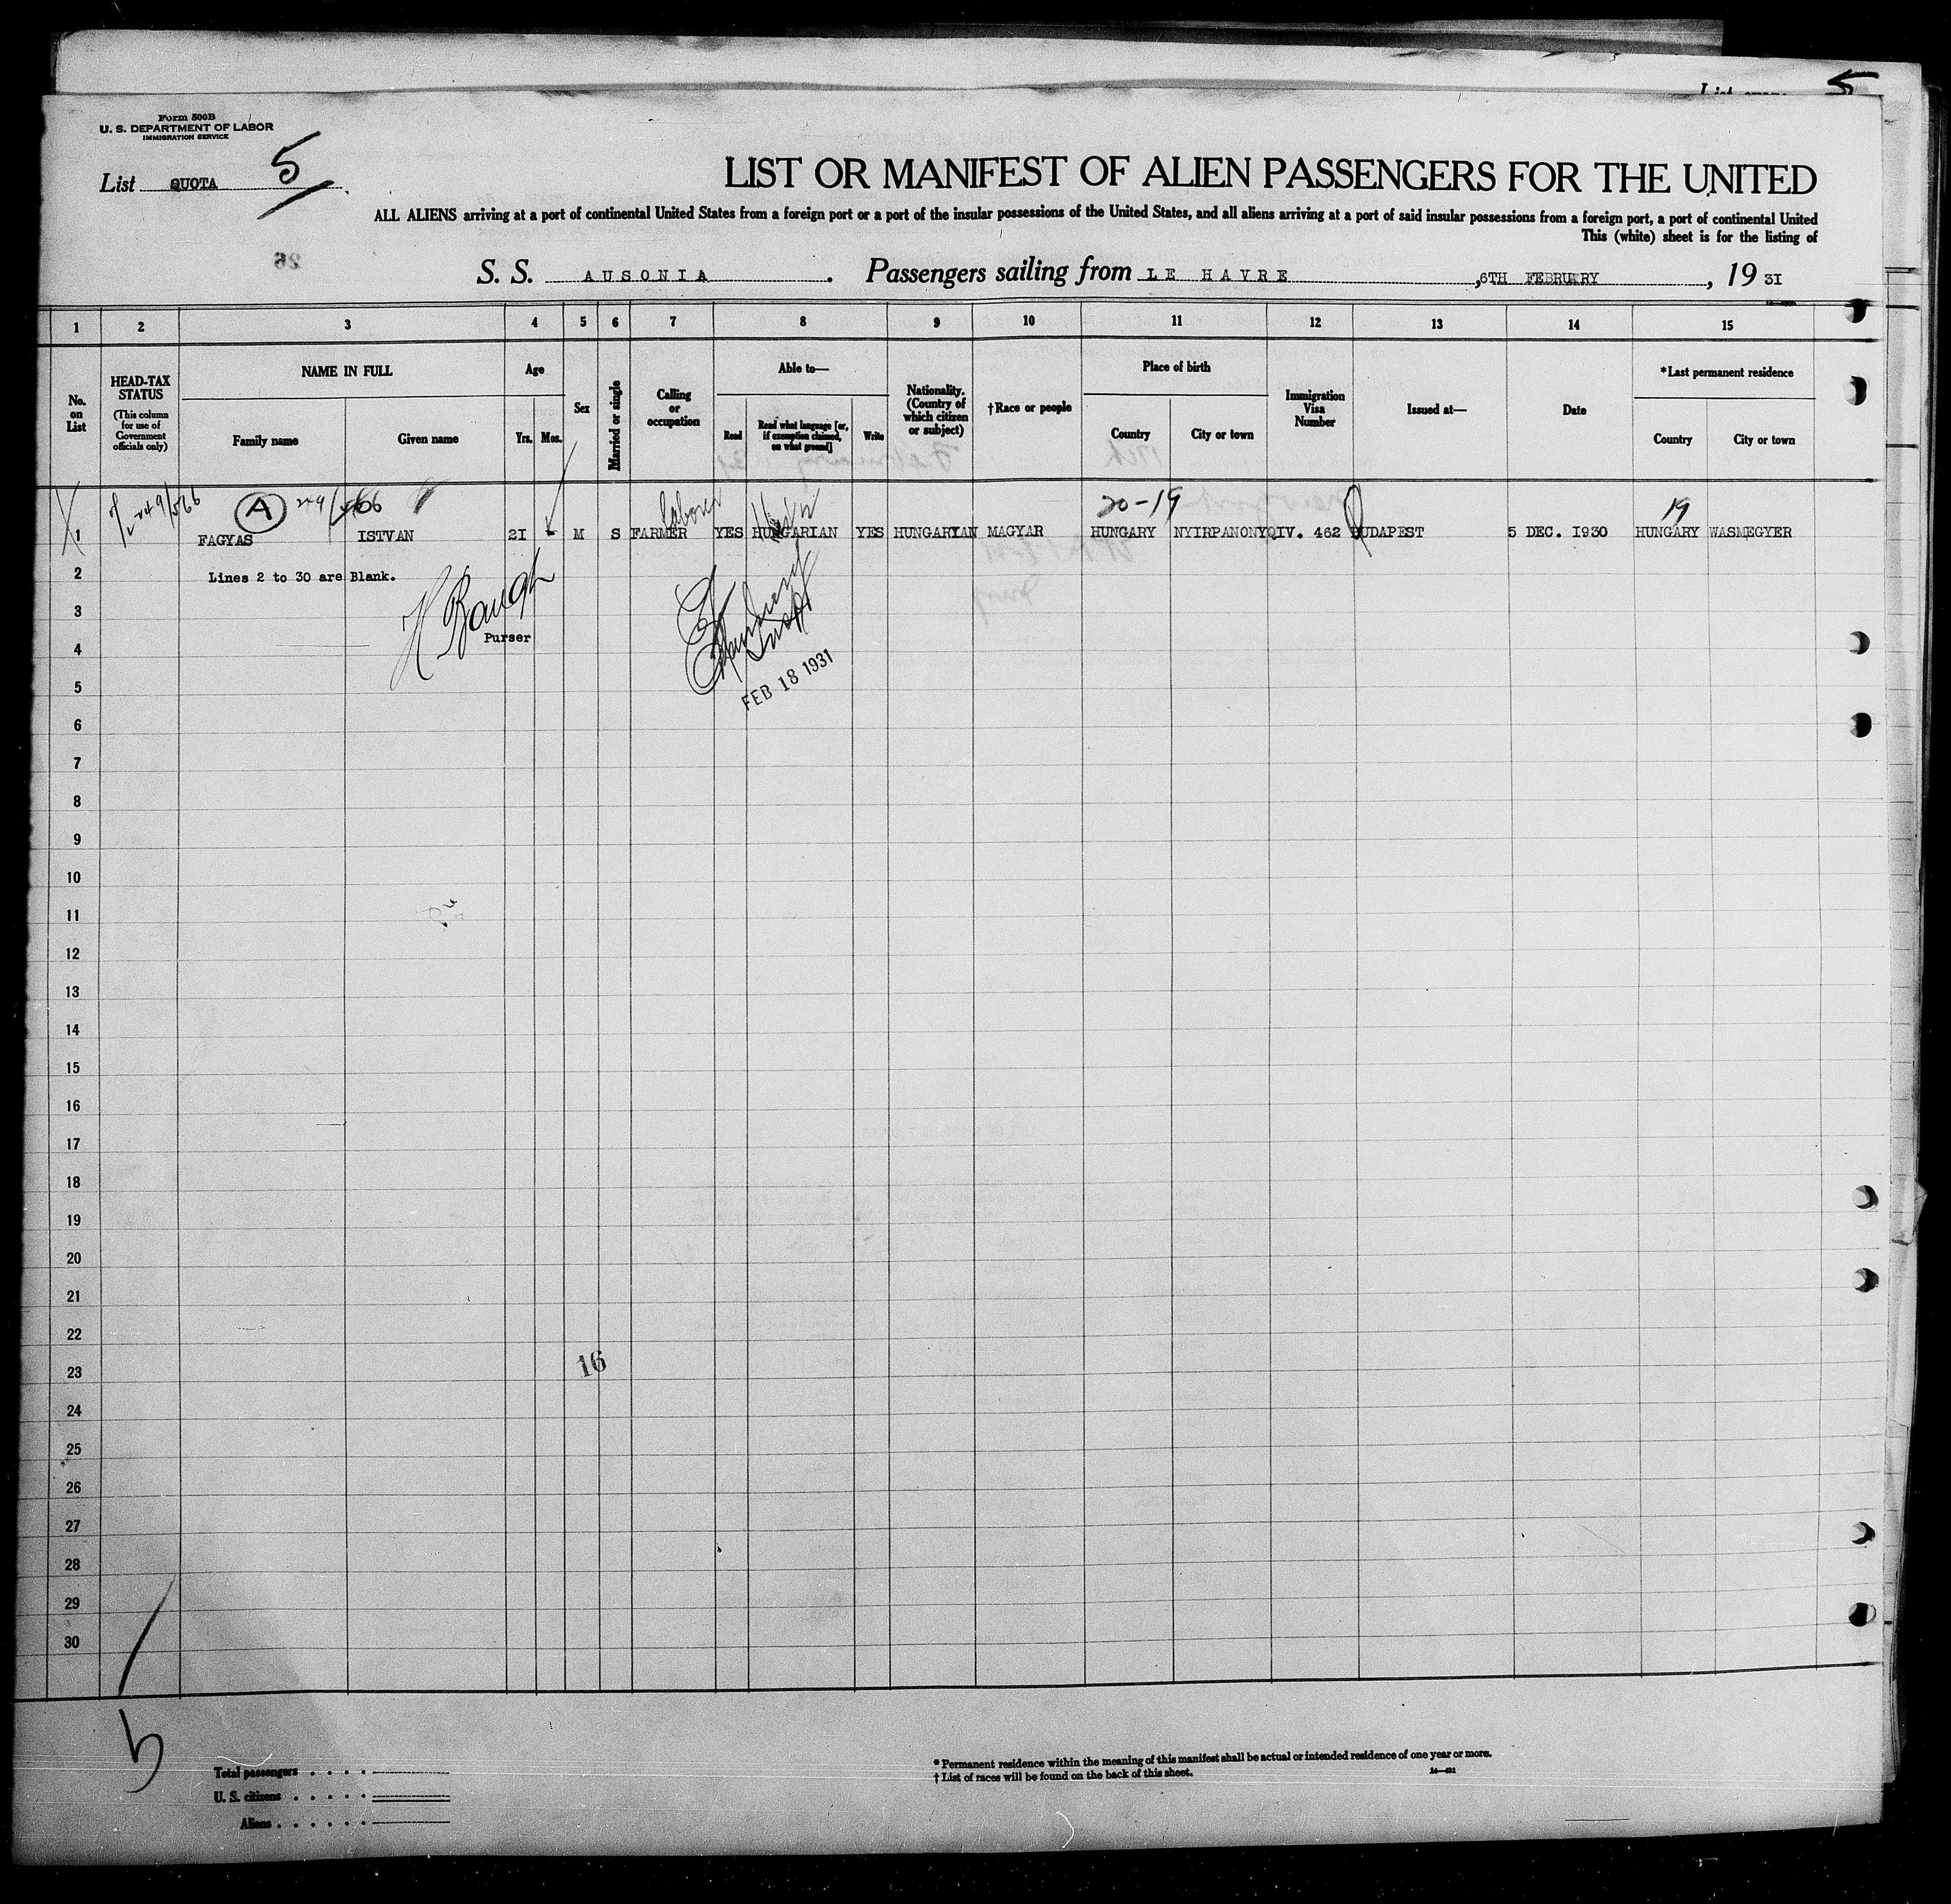 List
5
Form 500B
U. S. DEPARTMENT OF LABOR
IMMIGRATION SERVICE
List QUOTA 5
LIST OR MANIFEST OF ALIEN PASSENGERS FOR THE UNITED
ALL ALIENS arriving at a port of continental United States from a foreign port or a port of the insular possessions of the United States, and all aliens arriving at a port of said insular possessions from a foreign port, a port of continental United
This (white) sheet is for the listing of
26
S. S. AUSONIA. Passengers sailing from LE HAVRE, 6TH FEBRUARY, 19 3I
1 2 3 4 5 6 7 8 9 10 11 12 13 14 15
No. on List
HEAD-TAX STATUS (This column for use of Government officials only)
NAME IN FULL
Family name Given name
Age
Yrs. Mos.
Sex
Married or single
Calling or occupation
Able to—
Read Read what language [or, if exemption claimed, on what ground] Write
Nationality. (Country of which citizen or subject)
†Race or people
Place of birth
Country City or town
Immigration Visa Number
Issued at—
Date
*Last permanent residence
Country City or town
A 249/566 laborer 20-19 19
1 FAGYAS ISTVAN 2I - M S FARMER YES HUNGARIAN YES HUNGARYIAN MAGYAR HUNGARY NYIRPANONY QIV. 462 BUDAPEST 5 DEC. I930 HUNGARY WASMEGYER
2 Lines 2 to 30 are Blank.
H Baugh
3
Purser
4
5
FEB 18 1931
6
7
8
9
10
11
12
13
14
15
16
17
18
19
20
21
22
23 16
24
25
26
27
28
29
30
5
Total passengers
U. S. citizens
Aliens
* Permanent residence within the meaning of this manifest shall be actual or intended residence of one year or more.
† List of races will be found on the back of this sheet.